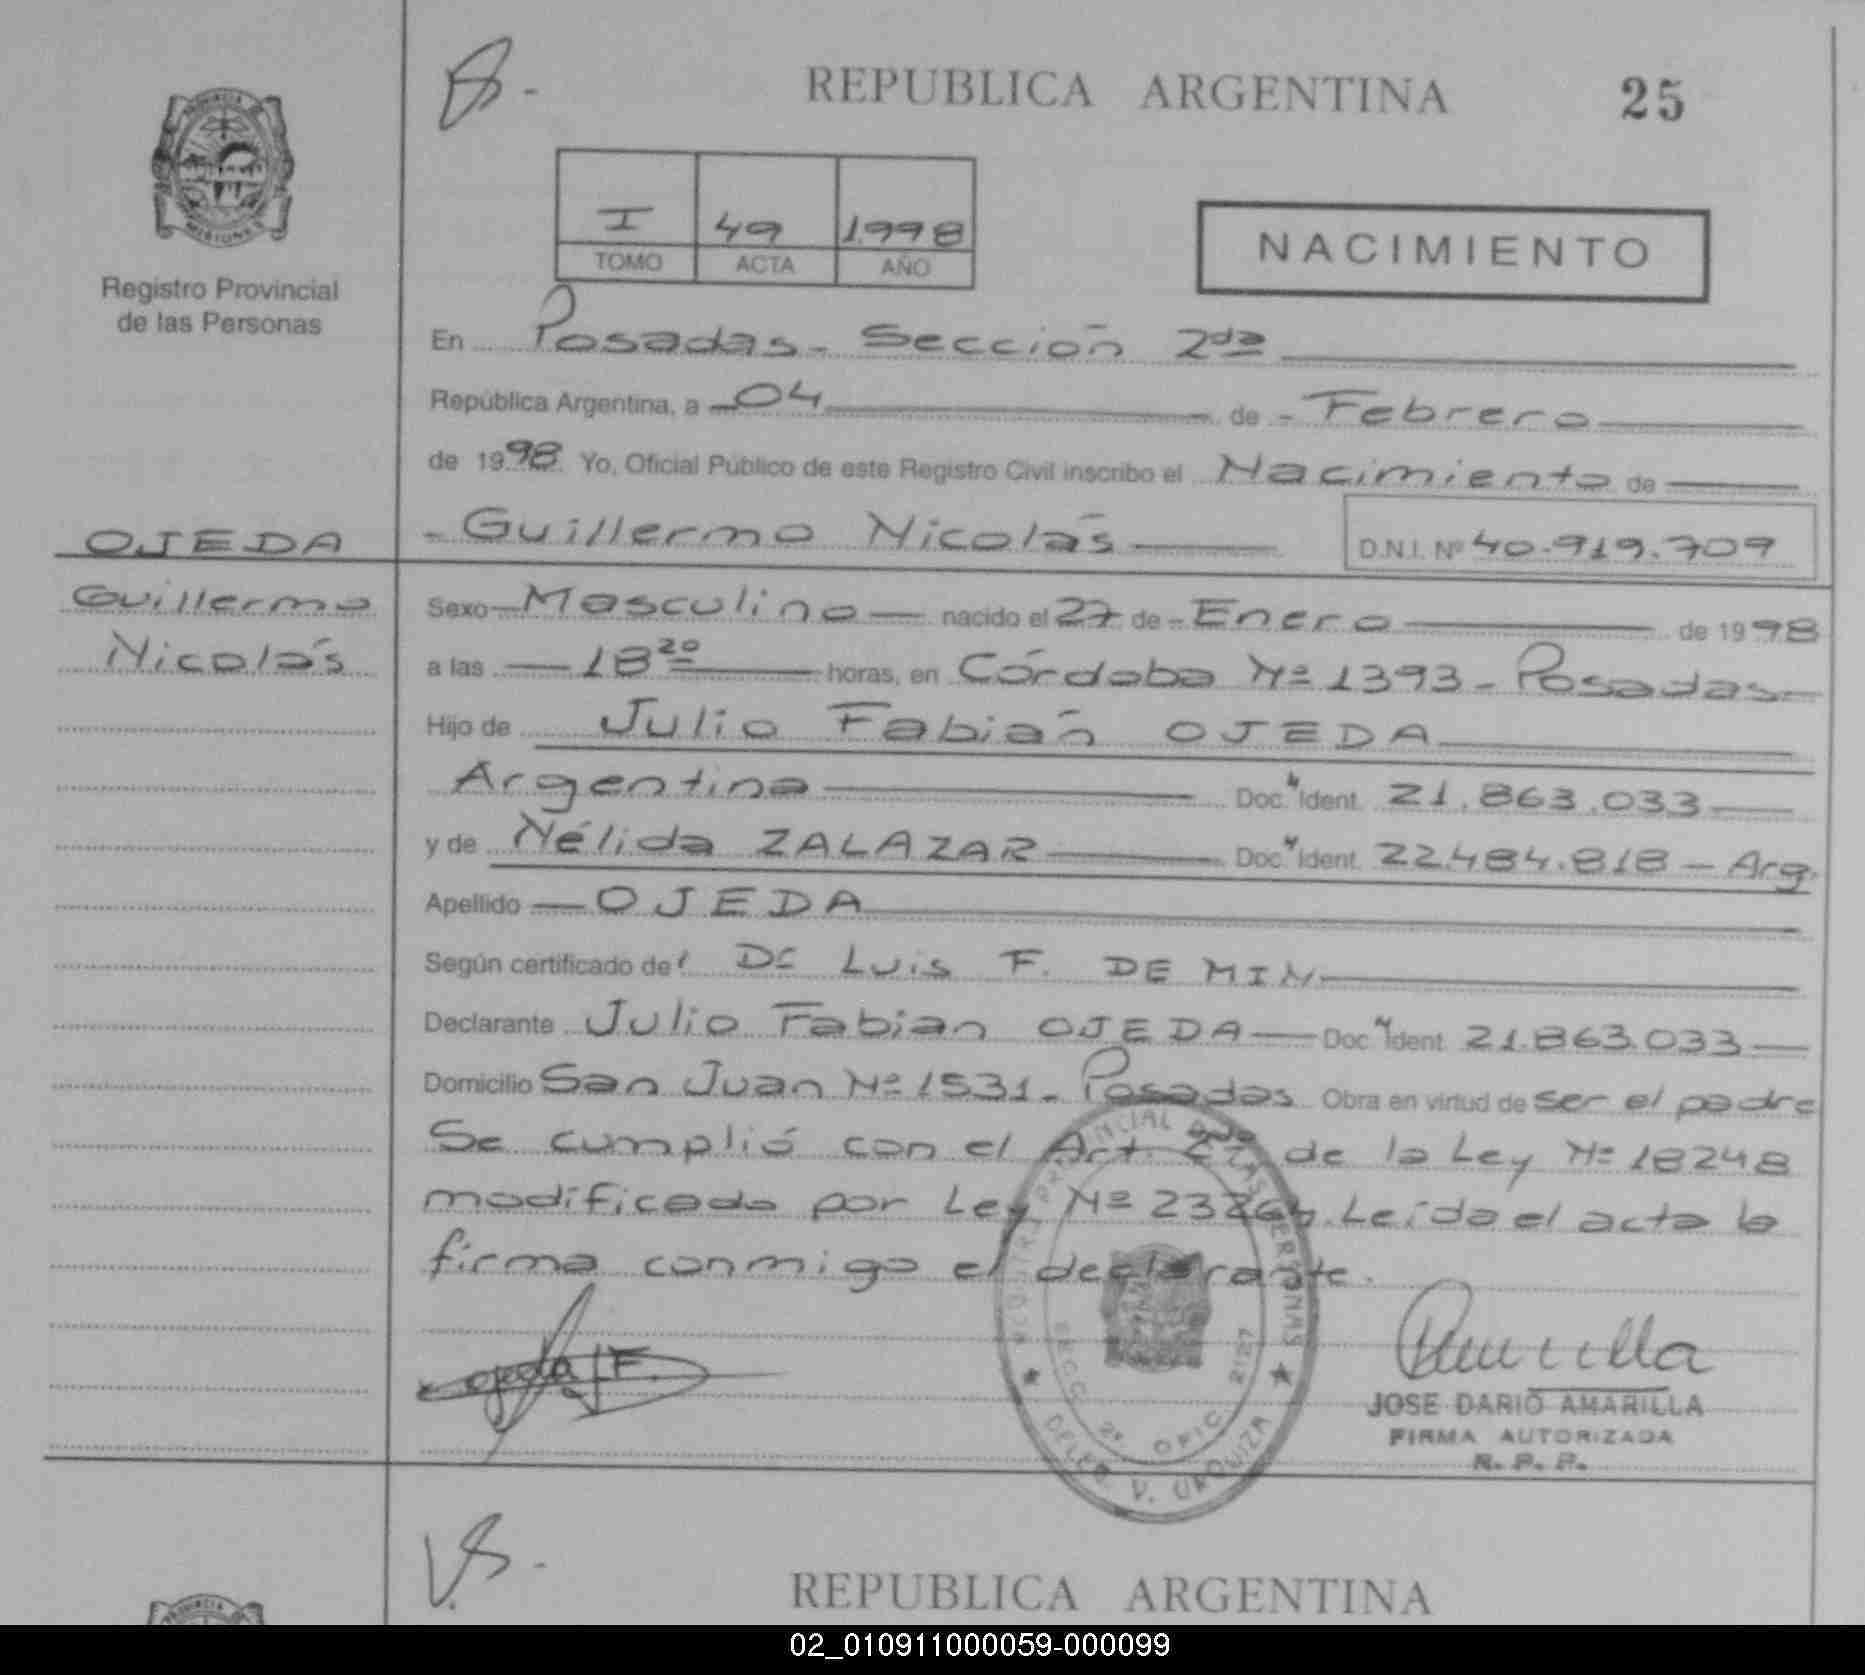 REPUBLICA ARGENTINA 25
PROVINCIA DE MISIONES
Registro Provincial
de las Personas
I 49 1998
TOMO ACTA AÑO
NACIMIENTO
En Posadas - Sección 2da
República Argentina, a 04 de - Febrero
de 1998. Yo, Oficial Público de este Registro Civil inscribo el Nacimiento de
OJEDA
Guillermo
Nicolás
- Guillermo Nicolás
D.N.I. Nº 40.919.709
Sexo Masculino nacido el 27 de - Enero de 1998
a las 18 20 horas, en Córdoba Nº 1393 - Posadas
Hijo de Julio Fabián OJEDA
Argentina Doc. Ident. 21.863.033
y de Nélida ZALAZAR Doc. Ident. 22.484.818 - Arg.
Apellido OJEDA
Según certificado del Dr Luis F. DE MIN
Declarante Julio Fabian OJEDA Doc. Ident. 21.863.033
Domicilio San Juan Nº 1531 - Posadas Obra en virtud de ser el padre
Se cumplió con el Art. de la Ley Nº 18248
modificada por Ley Nº 23264. Leída el acta la
firma conmigo el declarante.
Ojeda J F.
REGISTRO PROVINCIAL DE LAS PERSONAS
SECC. 2ª OFIC. 2127
DELEG. V. URQUIZA
JOSE DARIO AMARILLA
FIRMA AUTORIZADA
R. P. P.
REPUBLICA ARGENTINA
PROVINCIA DE
02_010911000059-000099